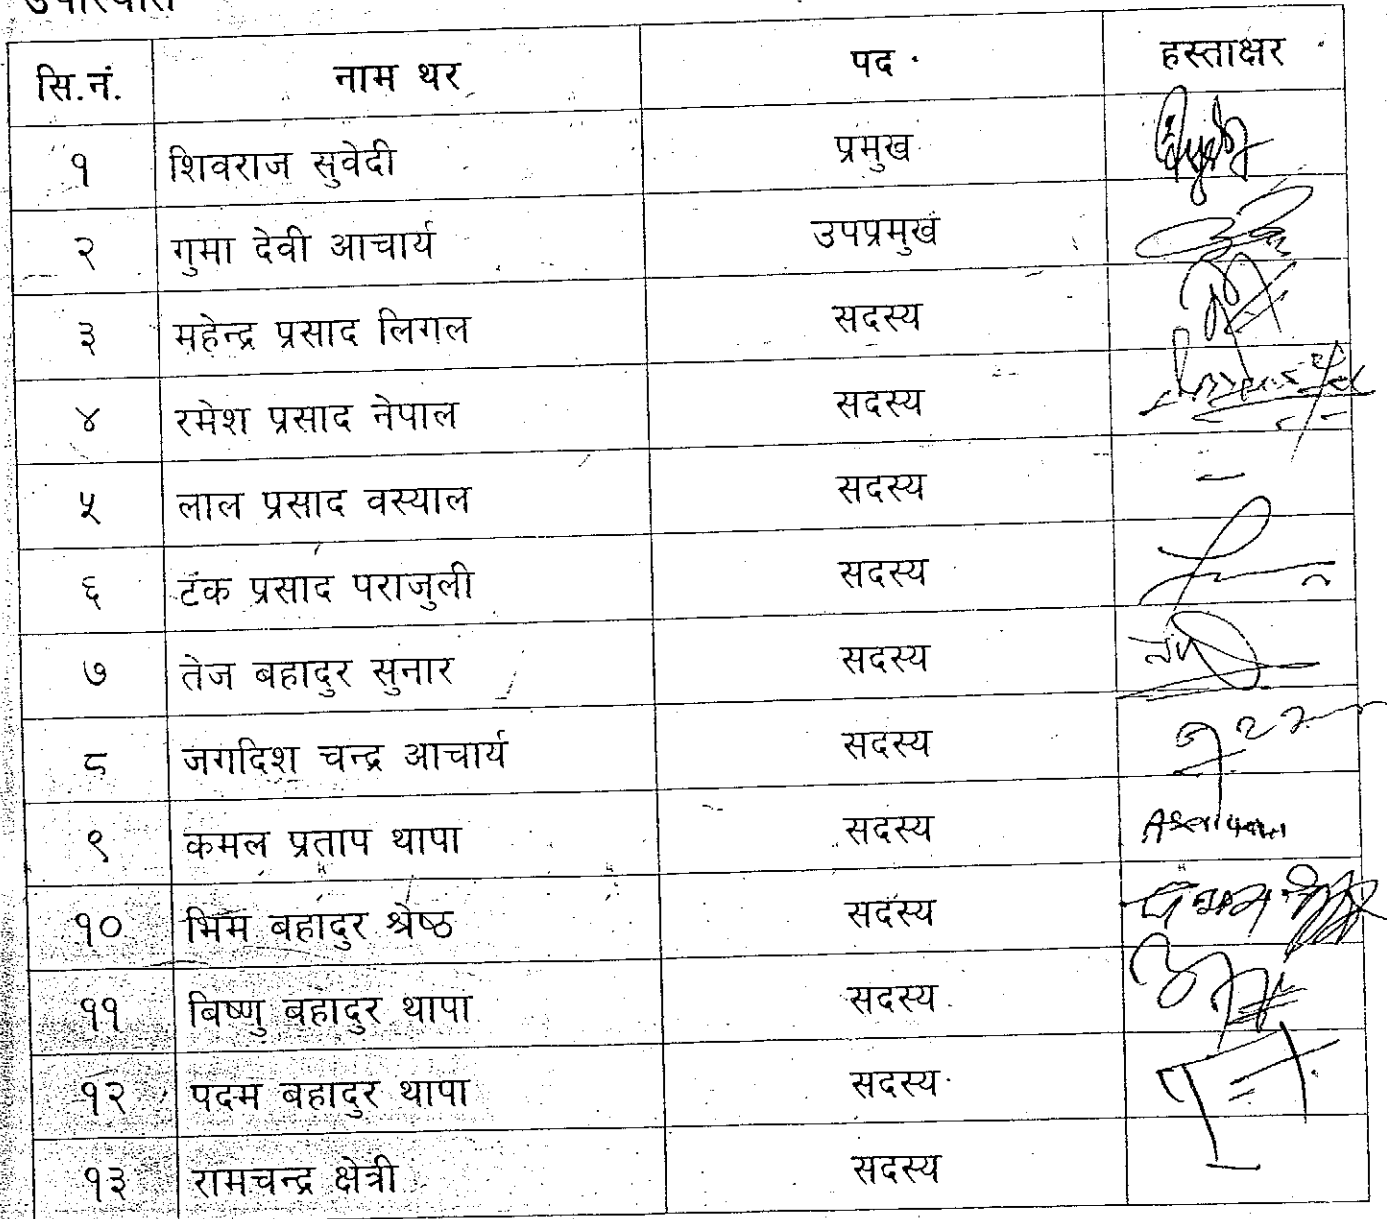 उपस्थिति
सि.नं. नाम थर पद हस्ताक्षर
१ शिवराज सुवेदी प्रमुख
२ गुमा देवी आचार्य उपप्रमुख
३ महेन्द्र प्रसाद लिगल सदस्य
४ रमेश प्रसाद नेपाल सदस्य
५ लाल प्रसाद वस्याल सदस्य -
६ टंक प्रसाद पराजुली सदस्य
७ तेज बहादुर सुनार सदस्य
८ जगदिश चन्द्र आचार्य सदस्य
९ कमल प्रताप थापा सदस्य
१० भिम बहादुर श्रेष्ठ सदस्य
११ बिष्णु बहादुर थापा सदस्य
१२ पदम बहादुर थापा सदस्य
१३ रामचन्द्र क्षेत्री सदस्य